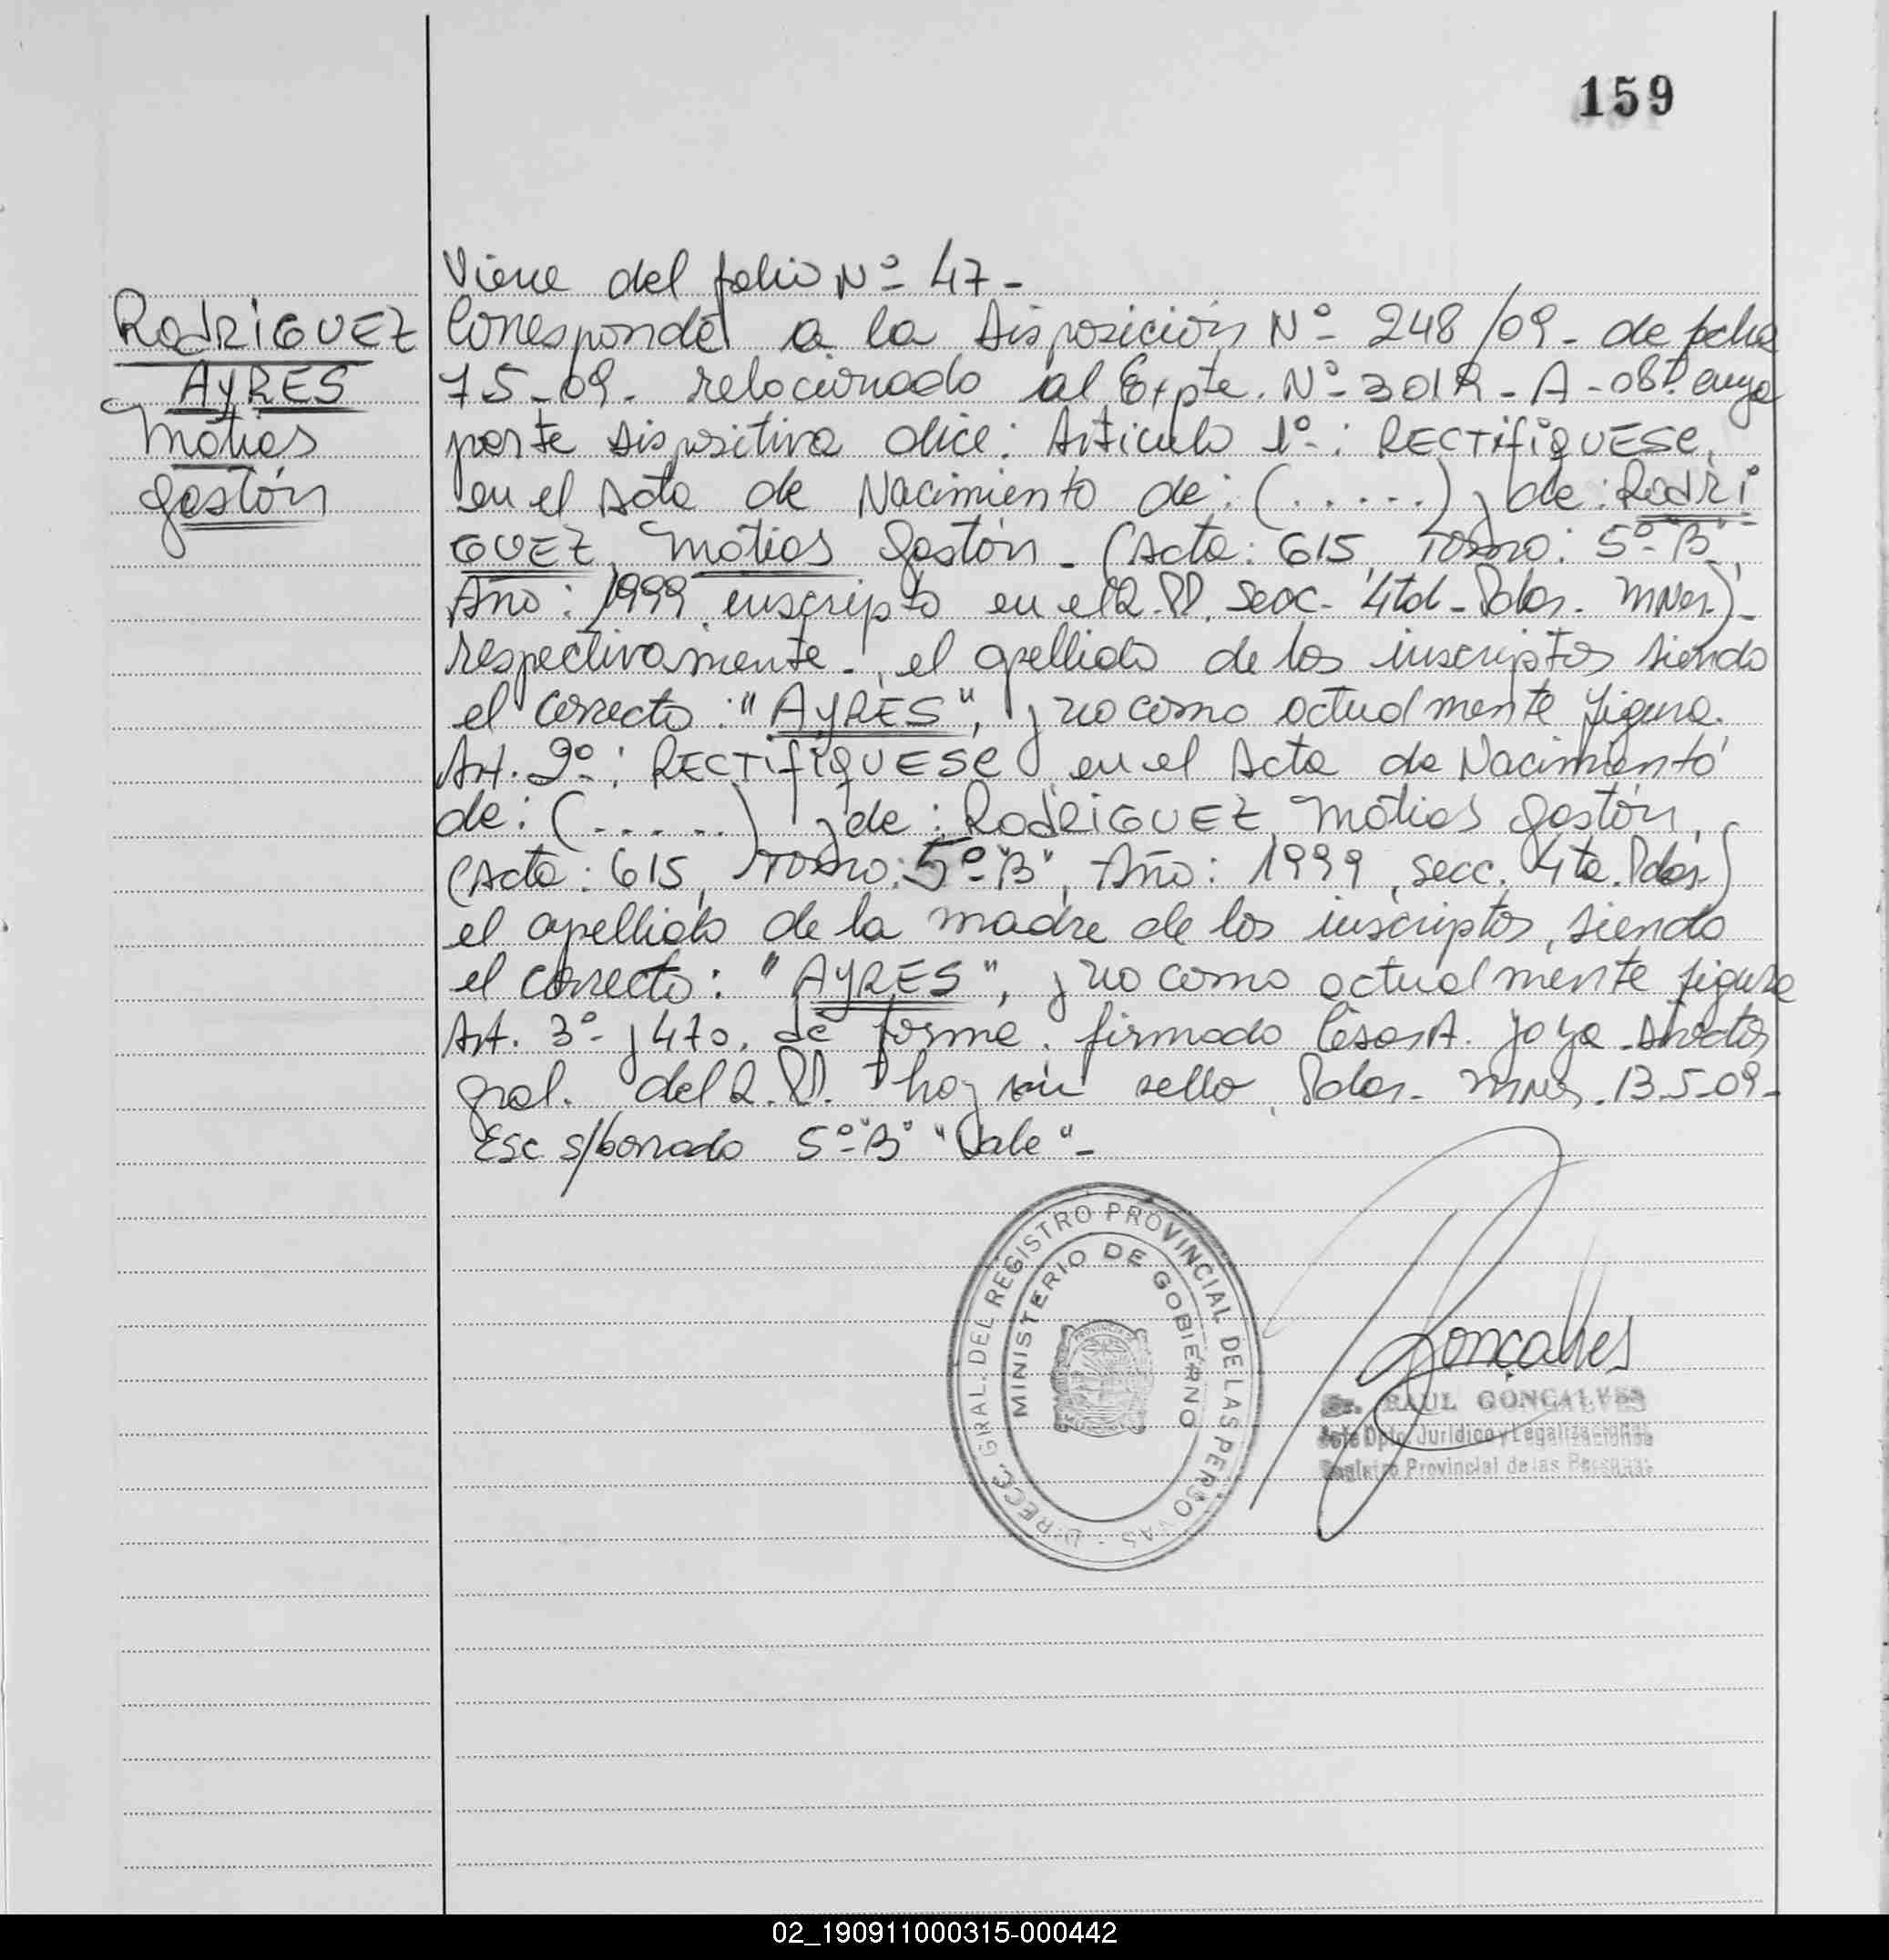 159
Viene del folio Nº 47-
RodRiGUEZ
AyRES
Matias
Gastón
Corresponde a la Disposición Nº- 248/09- de fecha
7 5-09- relacionado al Expte. Nº- 3019- A-08" cuya
parte dispositiva dice: Articulo 1º-: RECTifiQUESE,
en el Acta de Nacimiento de: (......) y de: RodRi
GUEZ, Matias Gastón- (Acta: 615, Tomo: 5º-"B"
Año: 1999, inscripto en el R.PP. Secc- 4ta- Pdas- MNes.)-
respectivamente-, el apellido de los inscriptos siendo
el correcto: "AyRES", y no como actualmente figura.
Art. 2º-: RECTifiQUESE en el Acta de Nacimiento
de: (......) y de: RodRiGUEZ, Matias Gastón,
(Acta: 615, Tomo: 5º-"B", Año: 1999, secc. 4ta. Pdas)
el apellido de la madre de los inscriptos, siendo
el correcto: "AyRES", y no como actualmente figura
Art. 3º- y 4to. de forma. firmado César A. Joya- Director
gral. del R.PP. hay un sello, Pdas- MNes. 13-5-09-
Esc s/borrado 5º-"B" "Vale"-
DIRECC. GRAL. DEL REGISTRO PROVINCIAL DE LAS PERSONAS -
MINISTERIO DE GOBIERNO
Gonçalves
Dr. RAUL GONÇALVES
Jefe Dpto. Jurídico y Legalizaciones
Registro Provincial de las Personas
02_190911000315-000442